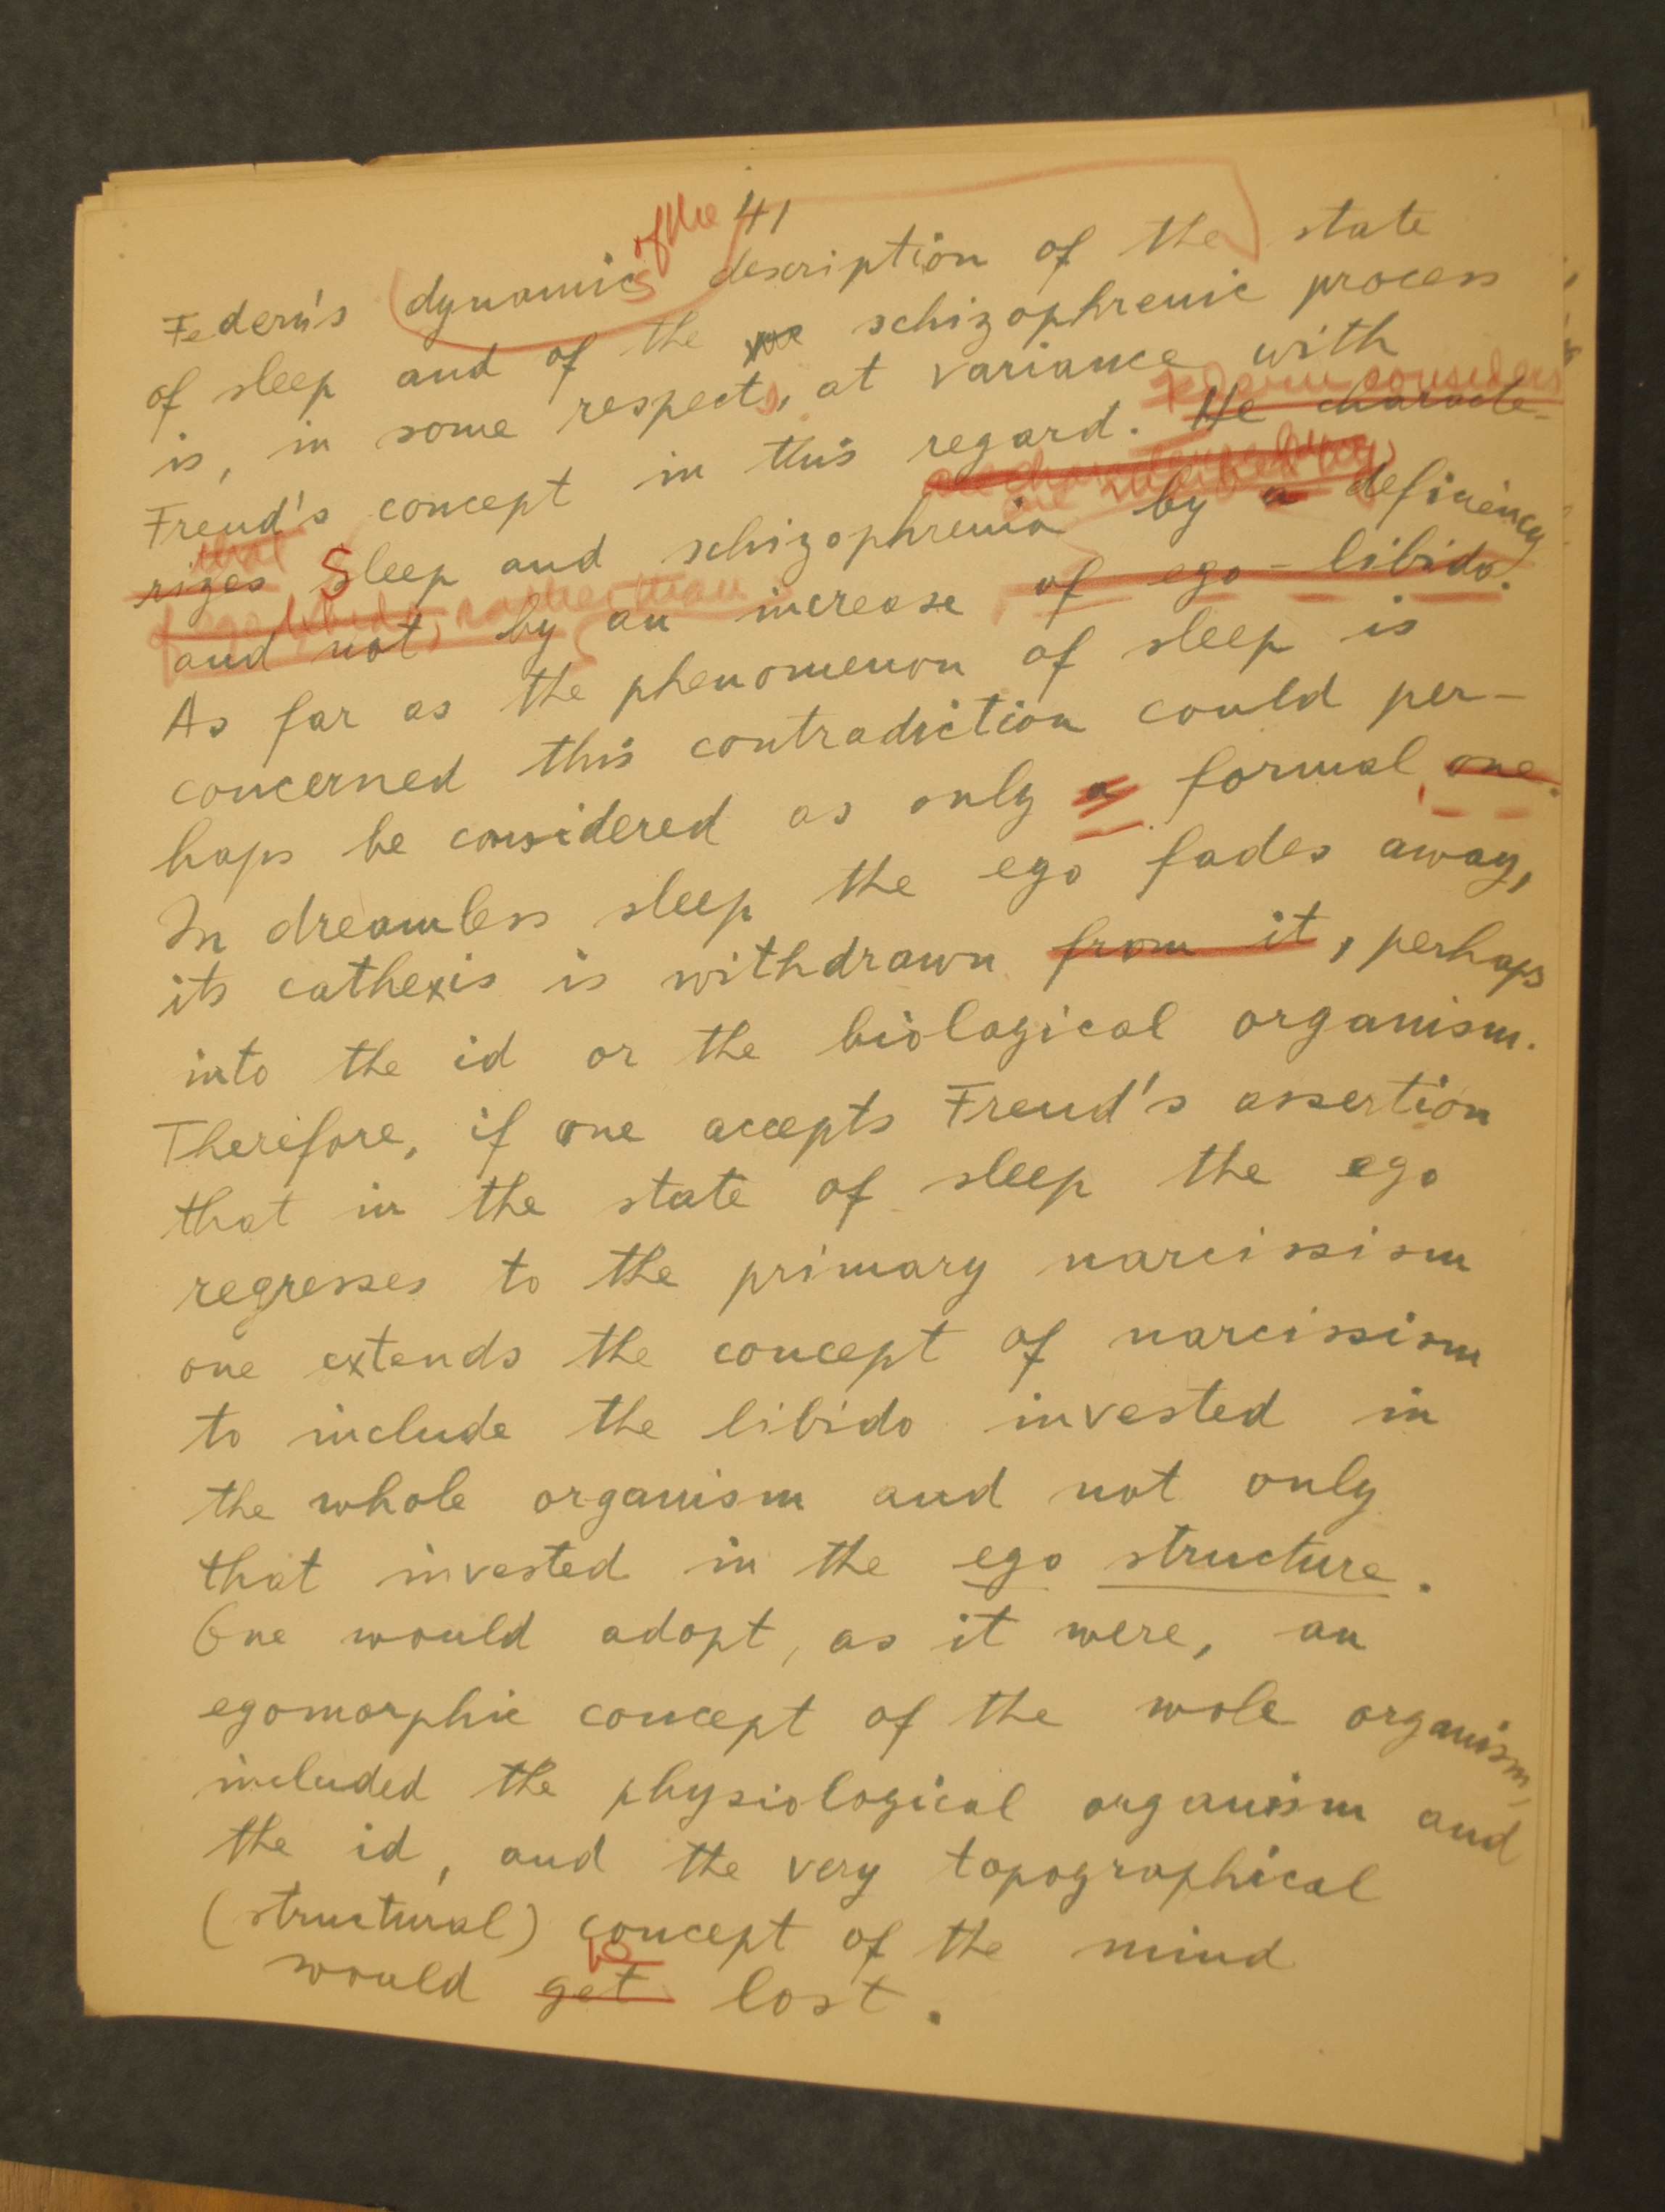 41
of the
Federn's dynamics description of the state
of sleep and of the schizophrenic process
is, in some respects, at variance with
Federn considers
Freud's concept in this regard. He characte-
are
that
rizes Sleep and schizophrenia by a deficiency
of ego libido, rather than
and not, by an increase of ego-libido.
As far as the phenomenon of sleep is
concerned this contradiction could per-
haps be considered as only a formal one.
In dreamless sleep the ego fades away,
its cathexis is withdrawn from it, perhaps
into the id or the biological organism.
Therefore, if one accepts Freud's assertion
that in the state of sleep the ego
regresses to the primary narcissism
one extends the concept of narcissism
to include the libido invested in
the whole organism and not only
that invested in the ego structure.
One would adopt, as it were, an
egomorphic concept of the wole organism,
included the physiological organism and
the id, and the very topographical
(structural) concept of the mind
be
would get lost.